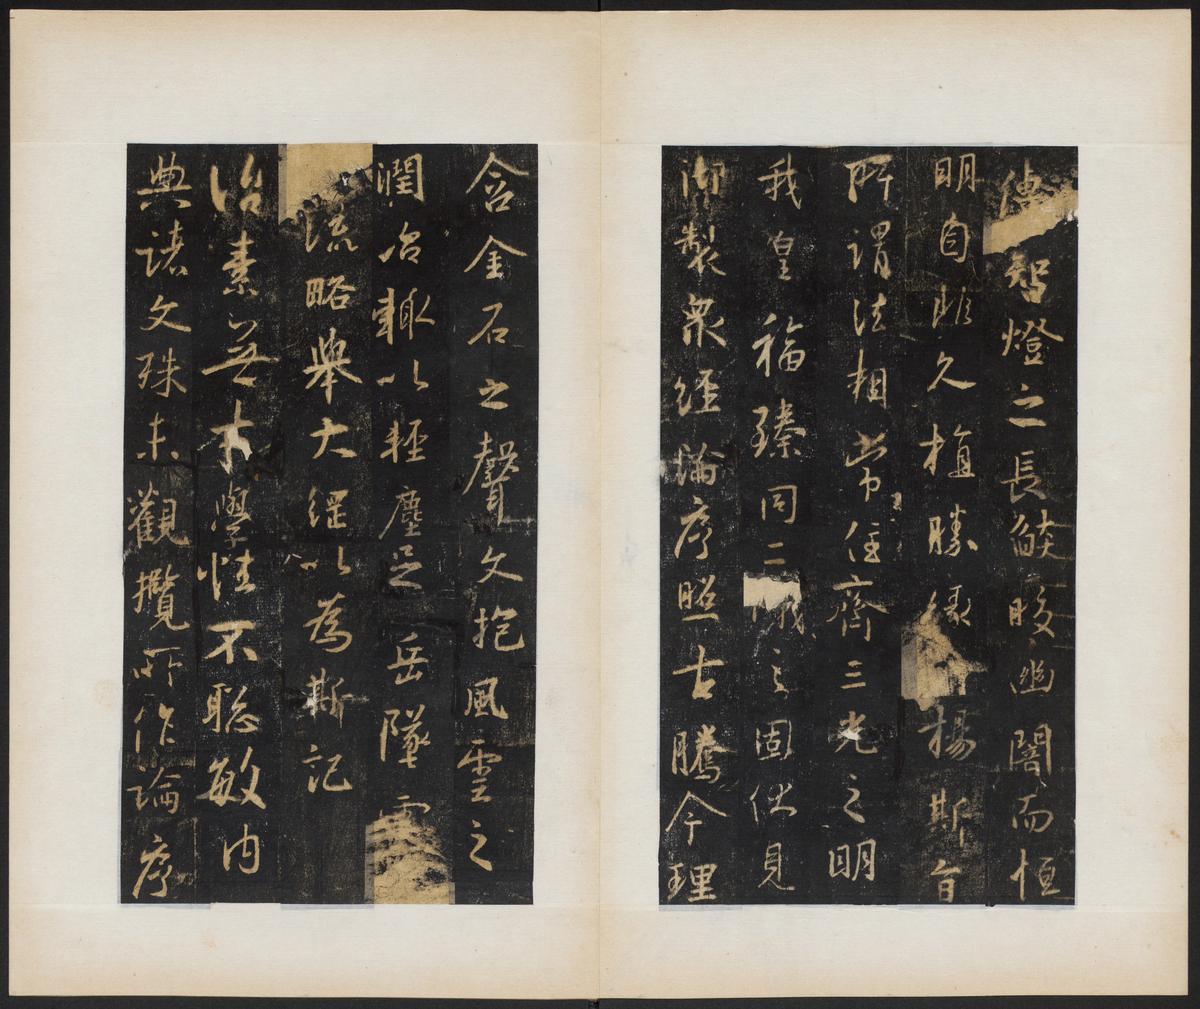 傳智燈之長焰皎幽闇而恒
明自非久植勝緣揚斯旨
所謂法相常住齊三光之明
我皇福臻同二儀之固伏見
御製眾經論序照古騰今理
含金石之聲文抱風雲之
潤治輒以輕塵足岳墜露
流略舉大綱以為斯記
治素無才學性不聰敏內
典諸文殊未觀攬所作論序